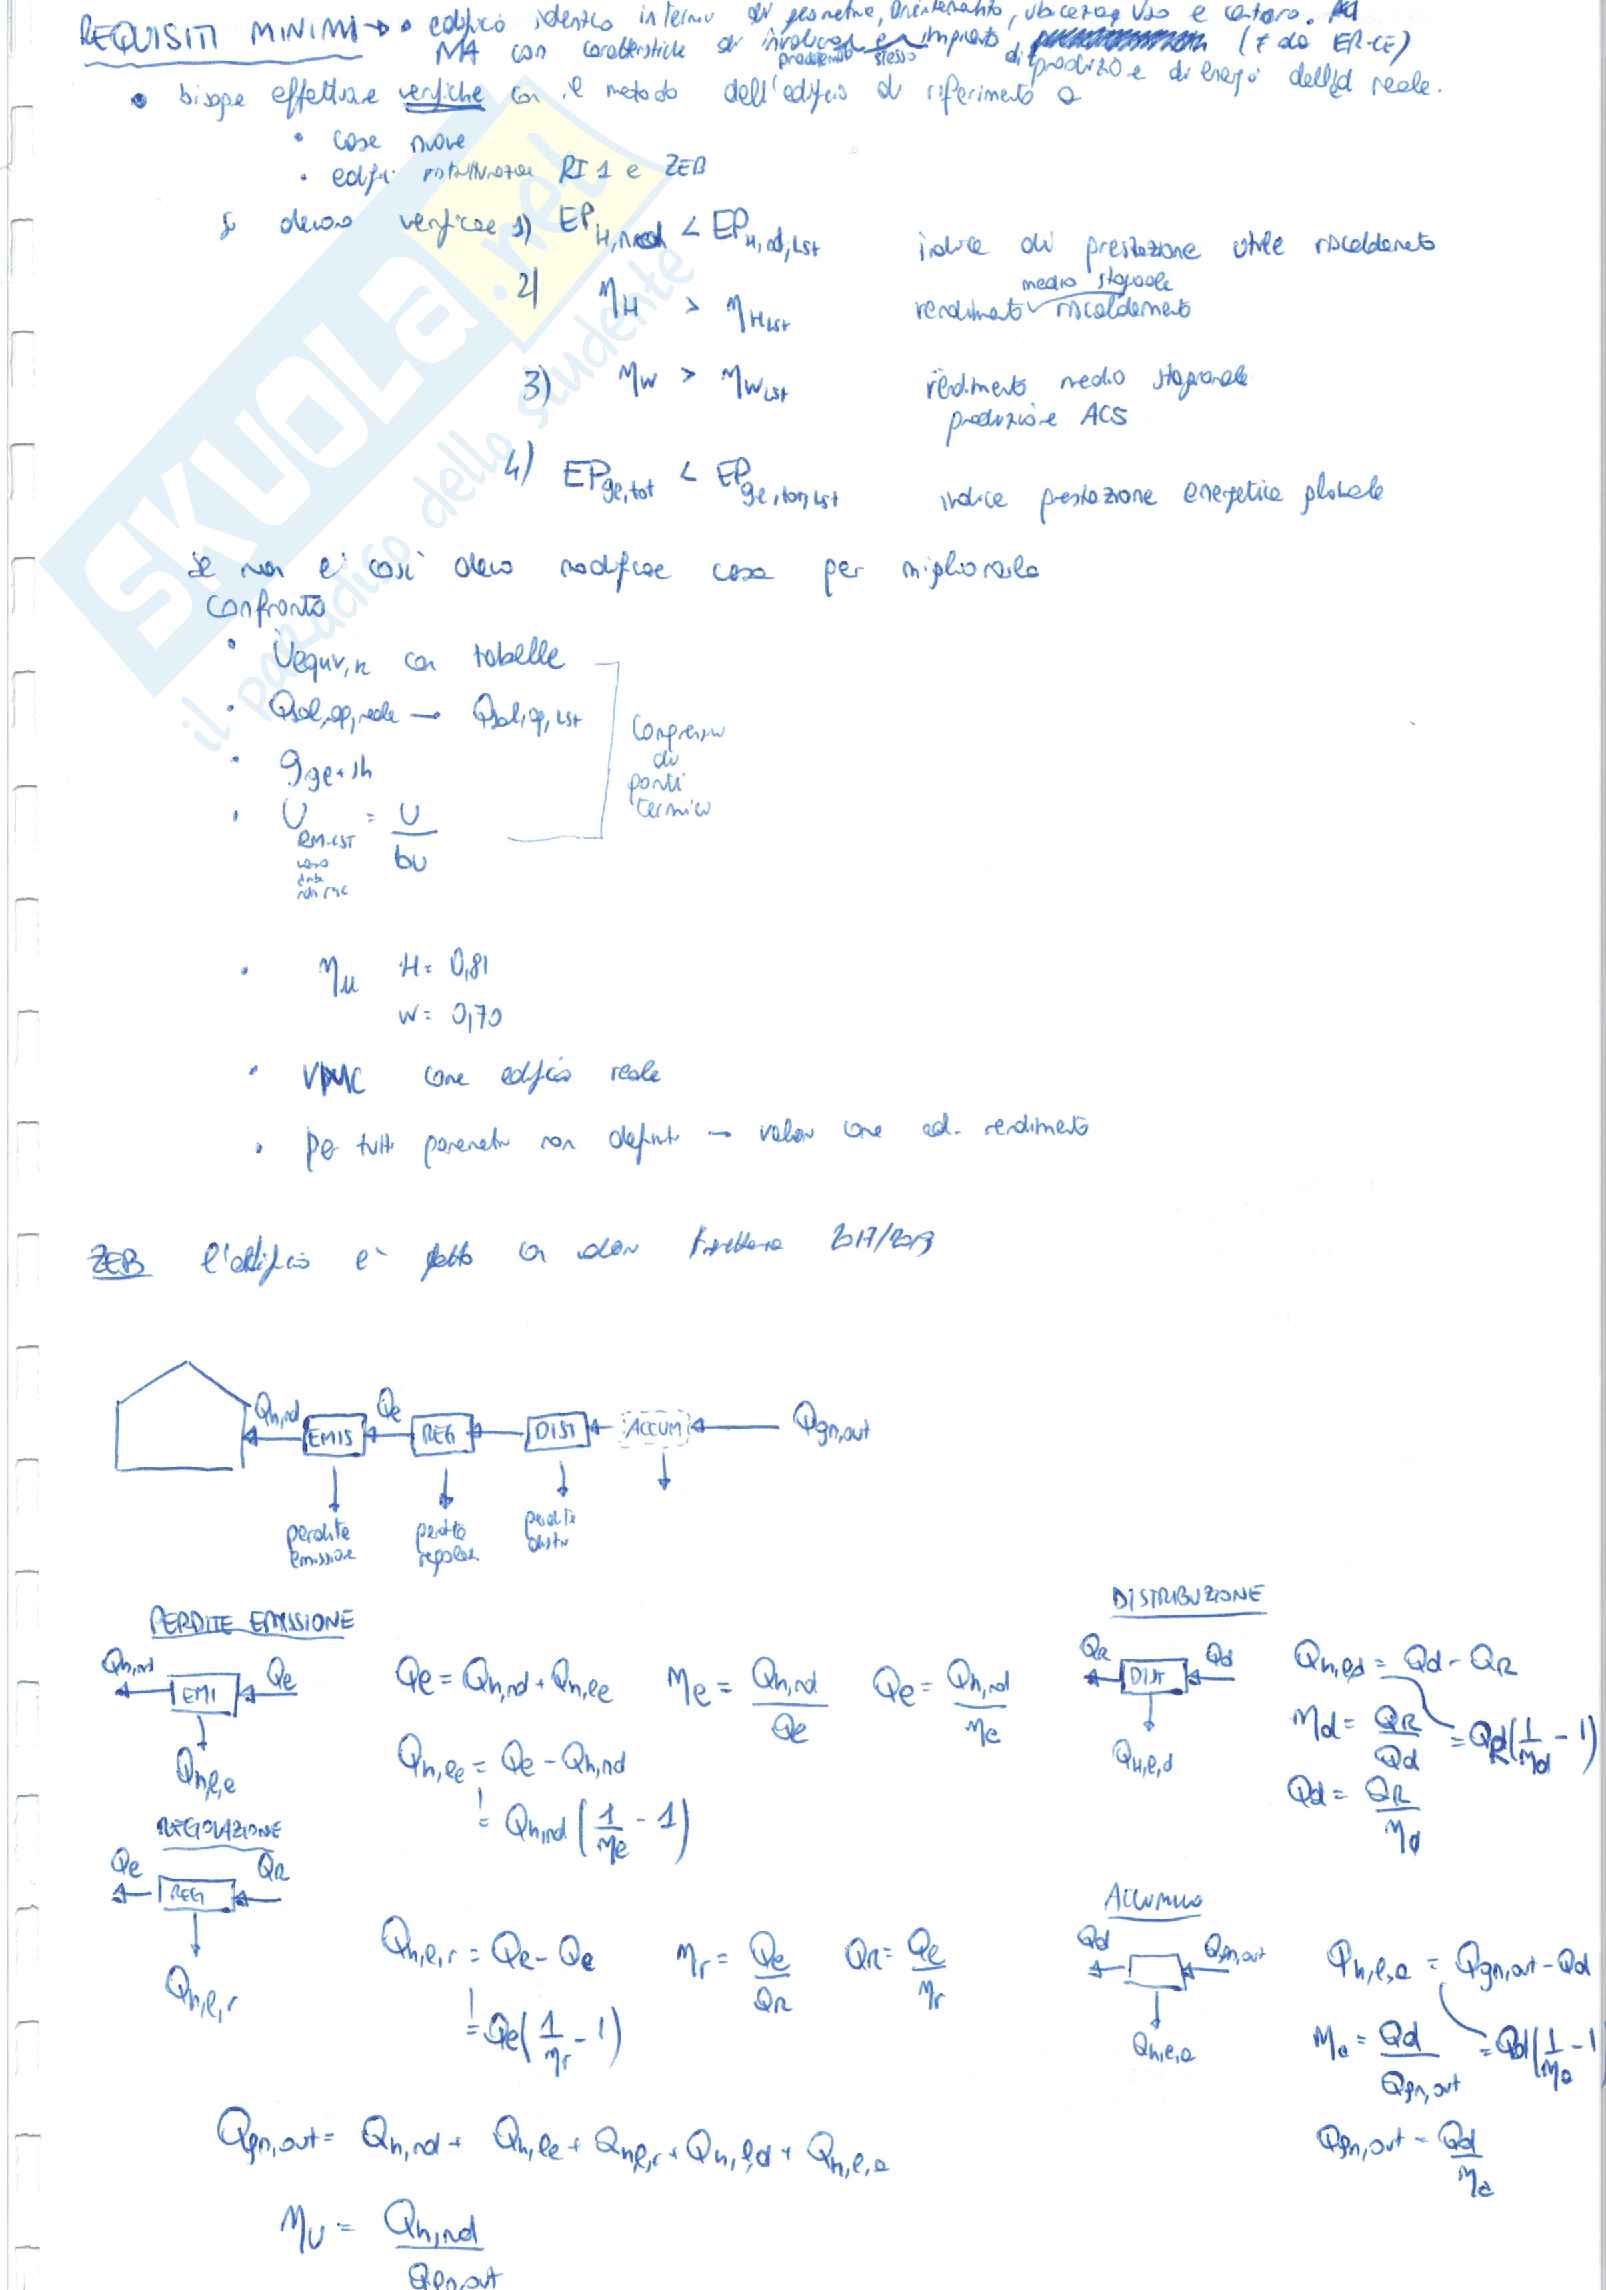 REQUISITI MINIMI → • edificio identico in termini di geometria, orientamento, ubicazione, uso e contorno.
MA con caratteristiche di involucro e impianto (≠ da ER-CE)
produzione stesso di produzione di energia dell'ed reale.
• bisogna effettuare verifiche con il metodo dell'edificio di riferimento a
• case nuove
• edifici ristrutturazione RI 1 e ZEB
si devono verificare 1) EP H,nd < EP H,nd,LST indice di prestazione utile riscaldamento
2) ηH > ηH LST rendimento medio stagionale riscaldamento
3) ηW > ηW LST rendimento medio stagionale
produzione ACS
4) EP ge,tot < EP ge,tot,LST indice prestazione energetica globale
se non e' così devo modificare casa per migliorarla
confronto
• Uequiv,k con tabelle
• Qsol,op,reale → Qsol,op,LST
• g ge+sh
• U RM-LST = U / bU
compresivi di ponti termici
• ηu H = 0,81
W = 0,70
• VMC come edificio reale
• per tutti parametri non definiti → valori come ed. rendimento
ZEB l'edificio e' fatto con valori 2017/2019
Qh,nd EMIS Qe REG DIST ACCUM Qgn,out
perdite emissione
perdite regolaz
perdite distr
PERDITE EMISSIONE
Qh,nd EMI Qe
Qh,l,e
Qe = Qh,nd + Qh,l,e ηe = Qh,nd / Qe Qe = Qh,nd / ηe
Qh,l,e = Qe - Qh,nd
= Qh,nd (1/ηe - 1)
DISTRIBUZIONE
QR DIST Qd
QH,l,d
Qh,l,d = Qd - QR
ηd = QR / Qd = QR (1/ηd - 1)
Qd = QR / ηd
REGOLAZIONE
Qe REG QR
Qh,l,r
Qh,l,r = QR - Qe ηr = Qe / QR QR = Qe / ηr
= Qe (1/ηr - 1)
ACCUMULO
Qd Qgn,out
Qh,l,a
Qh,l,a = Qgn,out - Qd
ηa = Qd / Qgn,out = Qd (1/ηa - 1
Qgn,out = Qd / ηa
Qgn,out = Qh,nd + Qh,l,e + Qh,l,r + Qh,l,d + Qh,l,a
ηU = Qh,nd / Qgn,out
SKUOLA.net
il paradiso dello studente